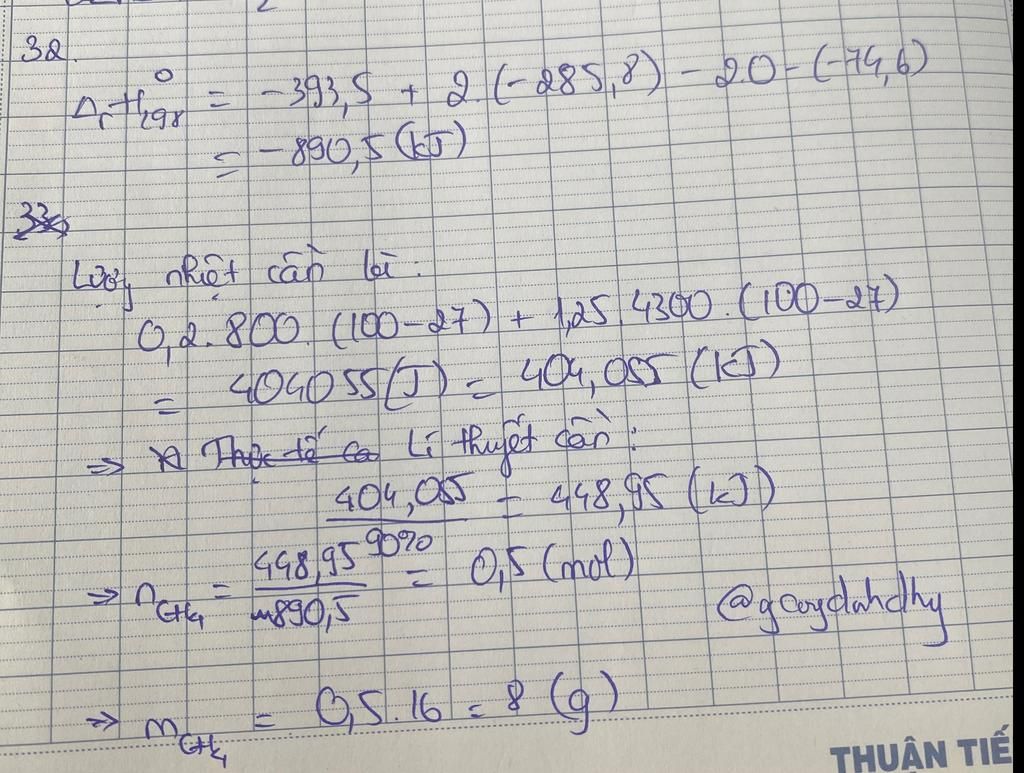 32.
ΔrH⁰298 = -393,5 + 2.(-285,8) - 2.0 - (-74,6)
= -890,5 (kJ)
33.
Lượng nhiệt cần là:
0,2.800.(100-27) + 1,25.4300.(100-27)
= 404055 (J) = 404,055 (kJ)
⇒ Thực tế Lí thuyết cần:
404,055/90% = 448,95 (kJ)
⇒ nCH4 = 448,95/890,5 = 0,5 (mol)
@gcoydahdhy
⇒ mCH4 = 0,5.16 = 8 (g)
THUẬN TIẾ